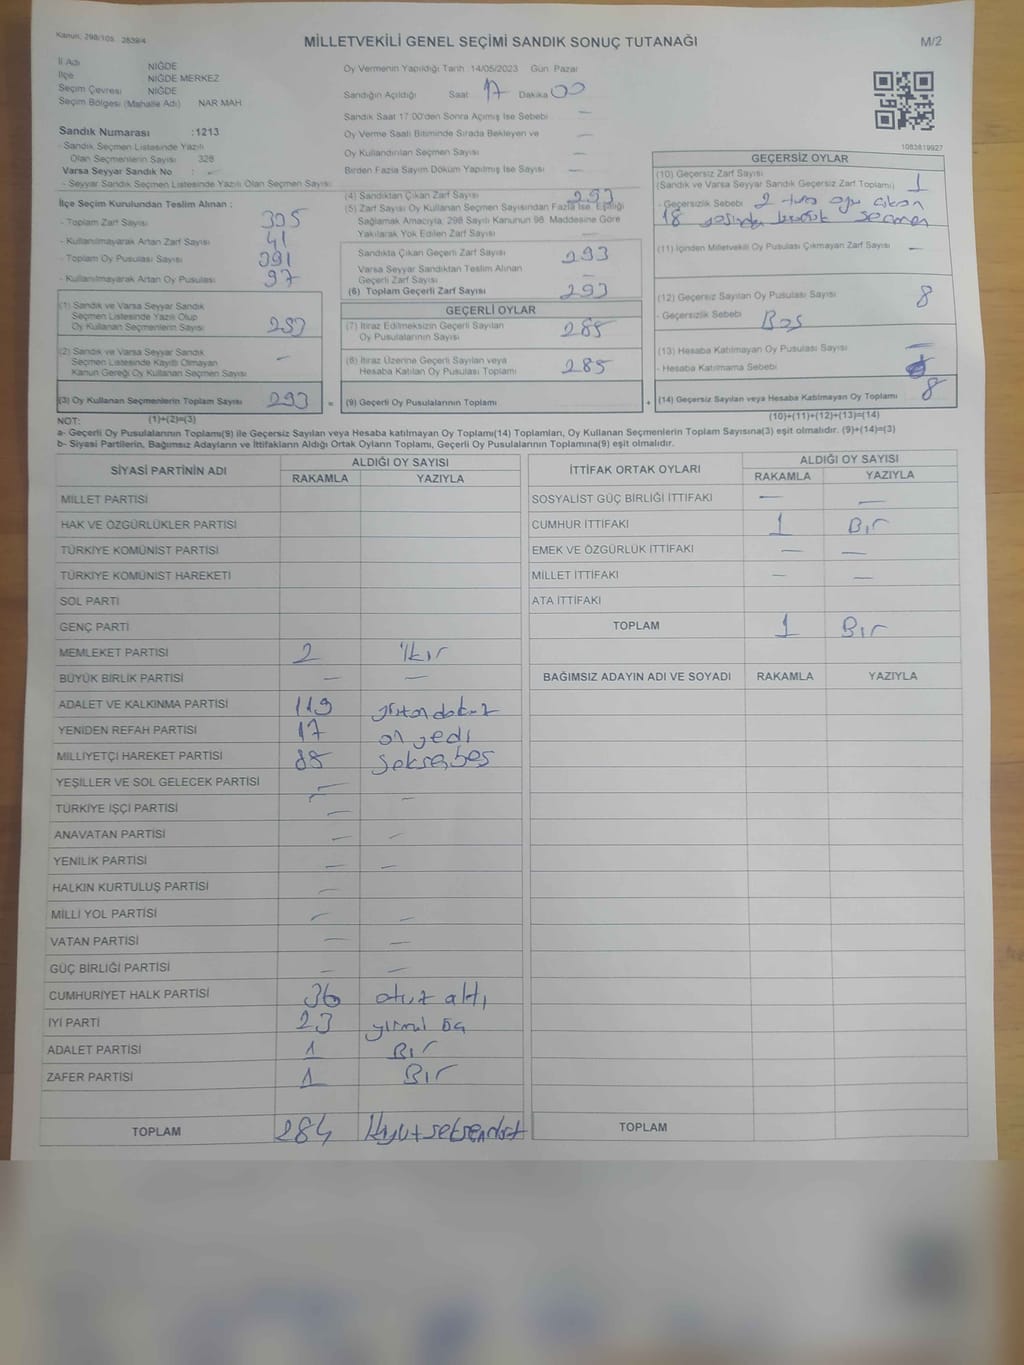 Kanun: 298/105 2839/4
MİLLETVEKİLİ GENEL SEÇİMİ SANDIK SONUÇ TUTANAĞI
M/2
İl Adı NİĞDE
İlçe NİĞDE MERKEZ
Seçim Çevresi NİĞDE
Seçim Bölgesi (Mahalle Adı) NAR MAH
Sandık Numarası :1213
- Sandık Seçmen Listesinde Yazılı
Olan Seçmenlerin Sayısı 328
Varsa Seyyar Sandık No : -
- Seyyar Sandık Seçmen Listesinde Yazılı Olan Seçmen Sayısı:
İlçe Seçim Kurulundan Teslim Alınan :
- Toplam Zarf Sayısı
- Kullanılmayarak Artan Zarf Sayısı 41
- Toplam Oy Pusulası Sayısı 391
- Kullanılmayarak Artan Oy Pusulası 97
(1) Sandık ve Varsa Seyyar Sandık
Seçmen Listesinde Yazılı Olup
Oy Kullanan Seçmenlerin Sayısı 293
(2) Sandık ve Varsa Seyyar Sandık
Seçmen Listesinde Kayıtlı Olmayan
Kanun Gereği Oy Kullanan Seçmen Sayısı -
(3) Oy Kullanan Seçmenlerin Toplam Sayısı 293
Oy Vermenin Yapıldığı Tarih :14/05/2023 Gün: Pazar
Sandığın Açıldığı Saat 17 Dakika 00
Sandık Saat 17:00'den Sonra Açılmış İse Sebebi -
Oy Verme Saati Bitiminde Sırada Bekleyen ve -
Oy Kullandırılan Seçmen Sayısı -
Birden Fazla Sayım Döküm Yapılmış İse Sayısı -
(4) Sandıktan Çıkan Zarf Sayısı 293
(5) Zarf Sayısı Oy Kullanan Seçmen Sayısından Fazla İse, Eşitliği
Sağlamak Amacıyla, 298 Sayılı Kanunun 98. Maddesine Göre
Yakılarak Yok Edilen Zarf Sayısı -
Sandıkta Çıkan Geçerli Zarf Sayısı 293
Varsa Seyyar Sandıktan Teslim Alınan
Geçerli Zarf Sayısı -
(6) Toplam Geçerli Zarf Sayısı 293
GEÇERLİ OYLAR
(7) İtiraz Edilmeksizin Geçerli Sayılan
Oy Pusulalarının Sayısı 285
(8) İtiraz Üzerine Geçerli Sayılan veya
Hesaba Katılan Oy Pusulası Toplamı 285
= (9) Geçerli Oy Pusulalarının Toplamı +
1083819927
GEÇERSİZ OYLAR
(10) Geçersiz Zarf Sayısı
(Sandık ve Varsa Seyyar Sandık Geçersiz Zarf Toplamı) 1
- Geçersizlik Sebebi 2 çıkan
18 seçmen
(11) İçinden Milletvekili Oy Pusulası Çıkmayan Zarf Sayısı -
(12) Geçersiz Sayılan Oy Pusulası Sayısı 8
- Geçersizlik Sebebi Boş
(13) Hesaba Katılmayan Oy Pusulası Sayısı -
- Hesaba Katılmama Sebebi
(14) Geçersiz Sayılan veya Hesaba Katılmayan Oy Toplamı 8
NOT: (1)+(2)=(3) (10)+(11)+(12)+(13)=(14)
a- Geçerli Oy Pusulalarının Toplamı(9) ile Geçersiz Sayılan veya Hesaba katılmayan Oy Toplamı(14) Toplamları, Oy Kullanan Seçmenlerin Toplam Sayısına(3) eşit olmalıdır. (9)+(14)=(3)
b- Siyasi Partilerin, Bağımsız Adayların ve İttifakların Aldığı Ortak Oyların Toplamı, Geçerli Oy Pusulalarının Toplamına(9) eşit olmalıdır.
SİYASİ PARTİNİN ADI ALDIĞI OY SAYISI
RAKAMLA YAZIYLA
MİLLET PARTİSİ
HAK VE ÖZGÜRLÜKLER PARTİSİ
TÜRKİYE KOMÜNİST PARTİSİ
TÜRKİYE KOMÜNİST HAREKETİ
SOL PARTİ
GENÇ PARTİ
MEMLEKET PARTİSİ 2 İki
BÜYÜK BİRLİK PARTİSİ - -
ADALET VE KALKINMA PARTİSİ 119
YENİDEN REFAH PARTİSİ 17 on yedi
MİLLİYETÇİ HAREKET PARTİSİ 85 seksenbeş
YEŞİLLER VE SOL GELECEK PARTİSİ -
TÜRKİYE İŞÇİ PARTİSİ - -
ANAVATAN PARTİSİ - -
YENİLİK PARTİSİ - -
HALKIN KURTULUŞ PARTİSİ -
MİLLİ YOL PARTİSİ - -
VATAN PARTİSİ - -
GÜÇ BİRLİĞİ PARTİSİ - -
CUMHURİYET HALK PARTİSİ 36 otuz altı
İYİ PARTİ 23 yirmi üç
ADALET PARTİSİ 1 Bir
ZAFER PARTİSİ 1 Bir
TOPLAM 284 ikiyüzseksendört
İTTİFAK ORTAK OYLARI ALDIĞI OY SAYISI
RAKAMLA YAZIYLA
SOSYALİST GÜÇ BİRLİĞİ İTTİFAKI - -
CUMHUR İTTİFAKI 1 Bir
EMEK VE ÖZGÜRLÜK İTTİFAKI - -
MİLLET İTTİFAKI - -
ATA İTTİFAKI
TOPLAM 1 Bir
BAĞIMSIZ ADAYIN ADI VE SOYADI RAKAMLA YAZIYLA
TOPLAM